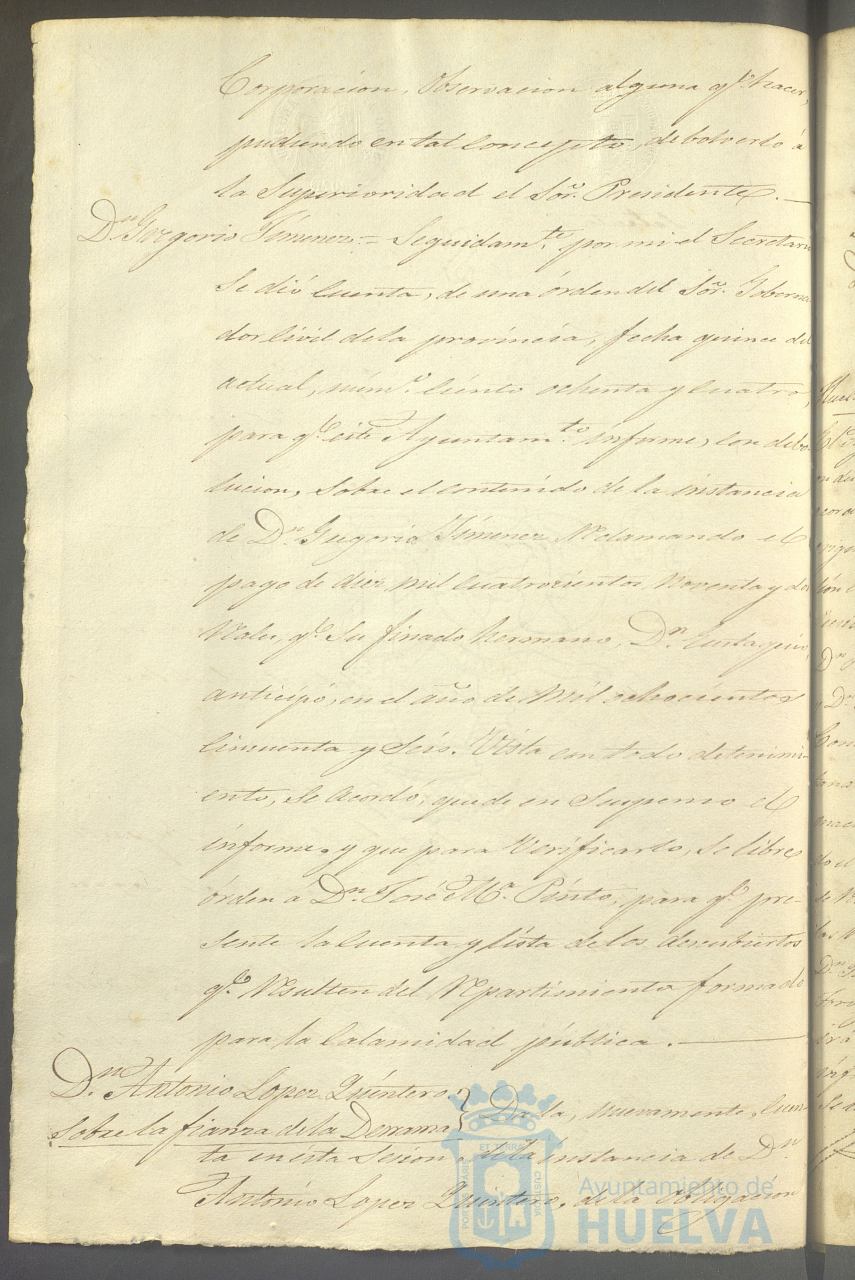 Corporacion, Observacion alguna q.e hacer,
pudiendo en tal Concepto, debolverlo á
la Superioridad el Sor. Presidente. —
D.n Gregorio Jimenez = Seguidam.te por mi el Secretario
Se dió Cuenta, de una órden del Sor. Goberna
dor Civil de la provincia, fecha quince del
actual, núm.o Ciento ochenta y Cuatro,
para q.e este Ayuntam.to informe, con debo
lucion, Sobre el contenido de la instancia
de D.n Gregorio Jimenez Reclamando el
pago de diez mil Cuatrocientos Noventa y dos
Reales, q.e Su finado hermano, D.n Eustaquio,
anticipó, en el año de Mil ochocientos
Cincuenta y Seis. Vista con todo detenimi-
ento, Se Acordó, quede en Suspenso el
informe, y que para Verificarlo, Se libre
órden á D.n José M.a Pinto, para q.e pre-
sente la Cuenta y lista de los descubiertos
q.e Resulten del Repartimiento formado
para la Calamidad pública. —
D.n Antonio Lopez Quintero } Dada, nuevamente, Cuen
Sobre la fianza de la Derrama
ta en esta Sesion, de la instancia de D.n
Antonio Lopez Quintero, de la Obligacion
Ayuntamiento de
HUELVA